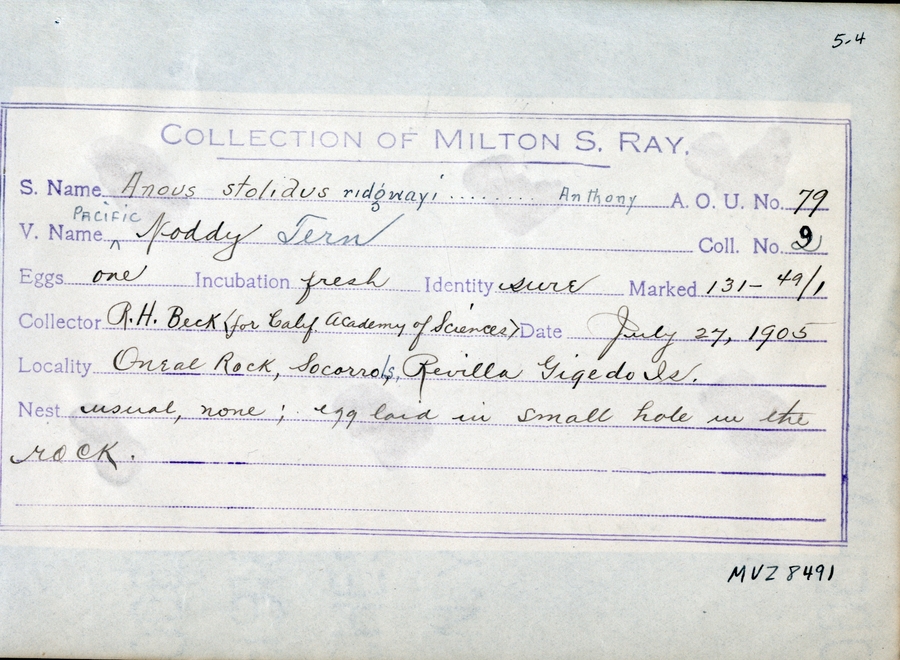 5-4
COLLECTION OF MILTON S. RAY.
S. Name Anous stolidus ridgwayi ......... Anthony A. O. U. No. 79
PACIFIC
V. Name ^ Noddy Tern Coll. No. 9
Eggs one Incubation fresh Identity sure Marked 131-49/1
Collector R.H. Beck (for Calif Academy of Sciences) Date July 27, 1905
Locality Oneal Rock, Socorro Is, Revilla Gigedo Is.
Nest usual, none; egg laid in small hole in the
rock.
MVZ 8491